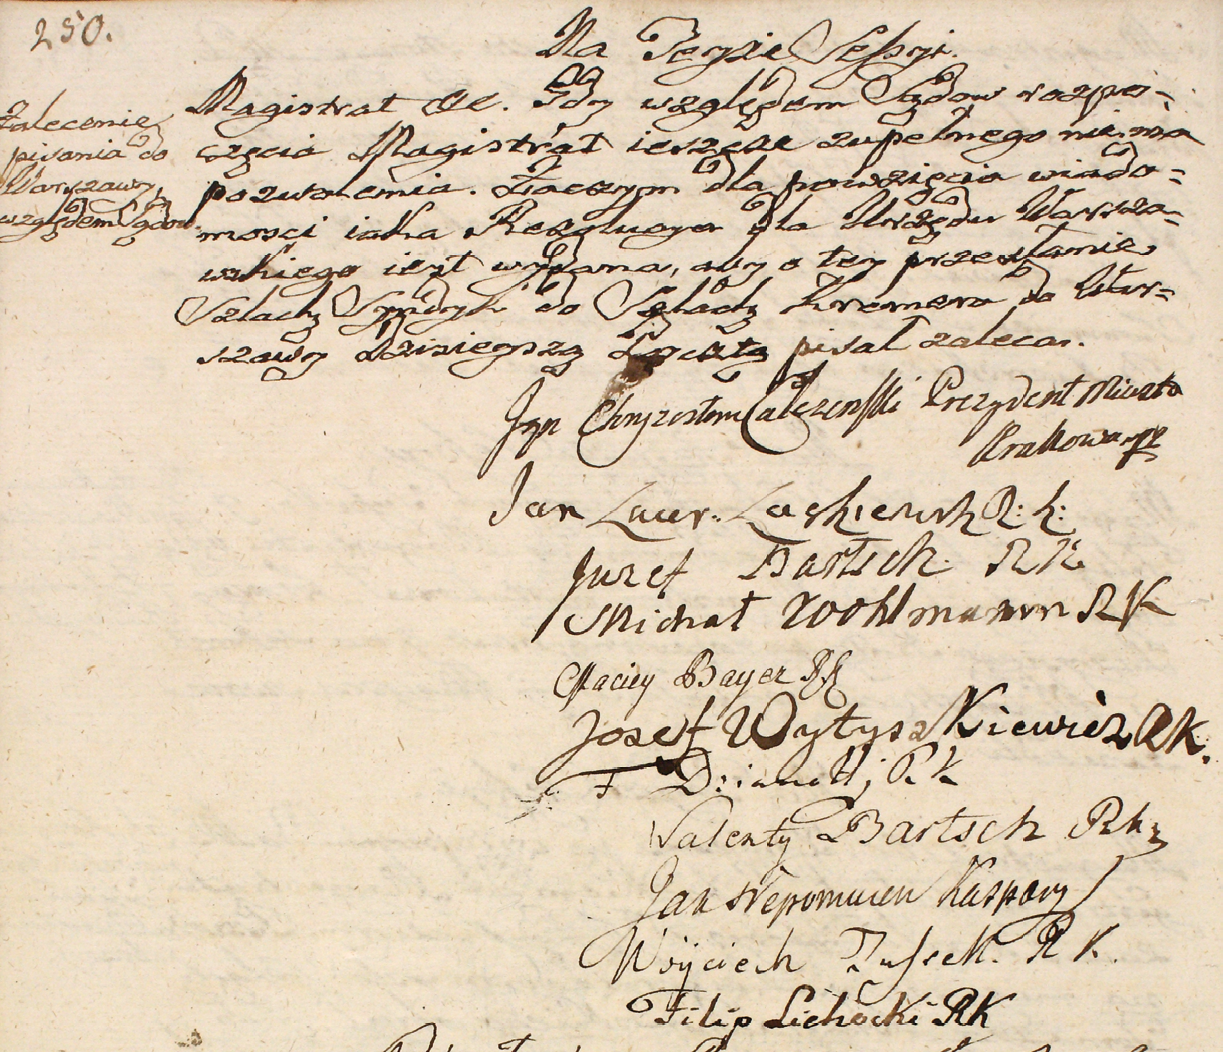 250.
Na Teyże Sessyi.
Zalecenie
pisania do
Warszawy
względem Sądow
Magistrat &c. Gdy względem Sądow rozpo-
częcia Magistrat ieszcze zupełnego nie ma
pozwolenia. Zaczym dla powzięcia wiado-
mosci iaka Rezolucya dla Urzędu Warsza-
wskiego iest wydana, aby o tey przesłanie
Szlach Syndyk do Szlach Kremera do War-
szawy dzisieyszą Pocztą pisał zaleca.
Jan Chryzostom Prezydent Miasta
Krakowa mp
Jan Lawr. Laskiewicz R: K:
Juzef Bartsch RK
Michał Wohlmann RK
Maciey Bayer RK
Jozef Wytyszkiewicz RK.
F RK
Walenty Bartsch RK
Jan Nepomucen Kaspary
Woyciech R K.
Filip Lichocki RK